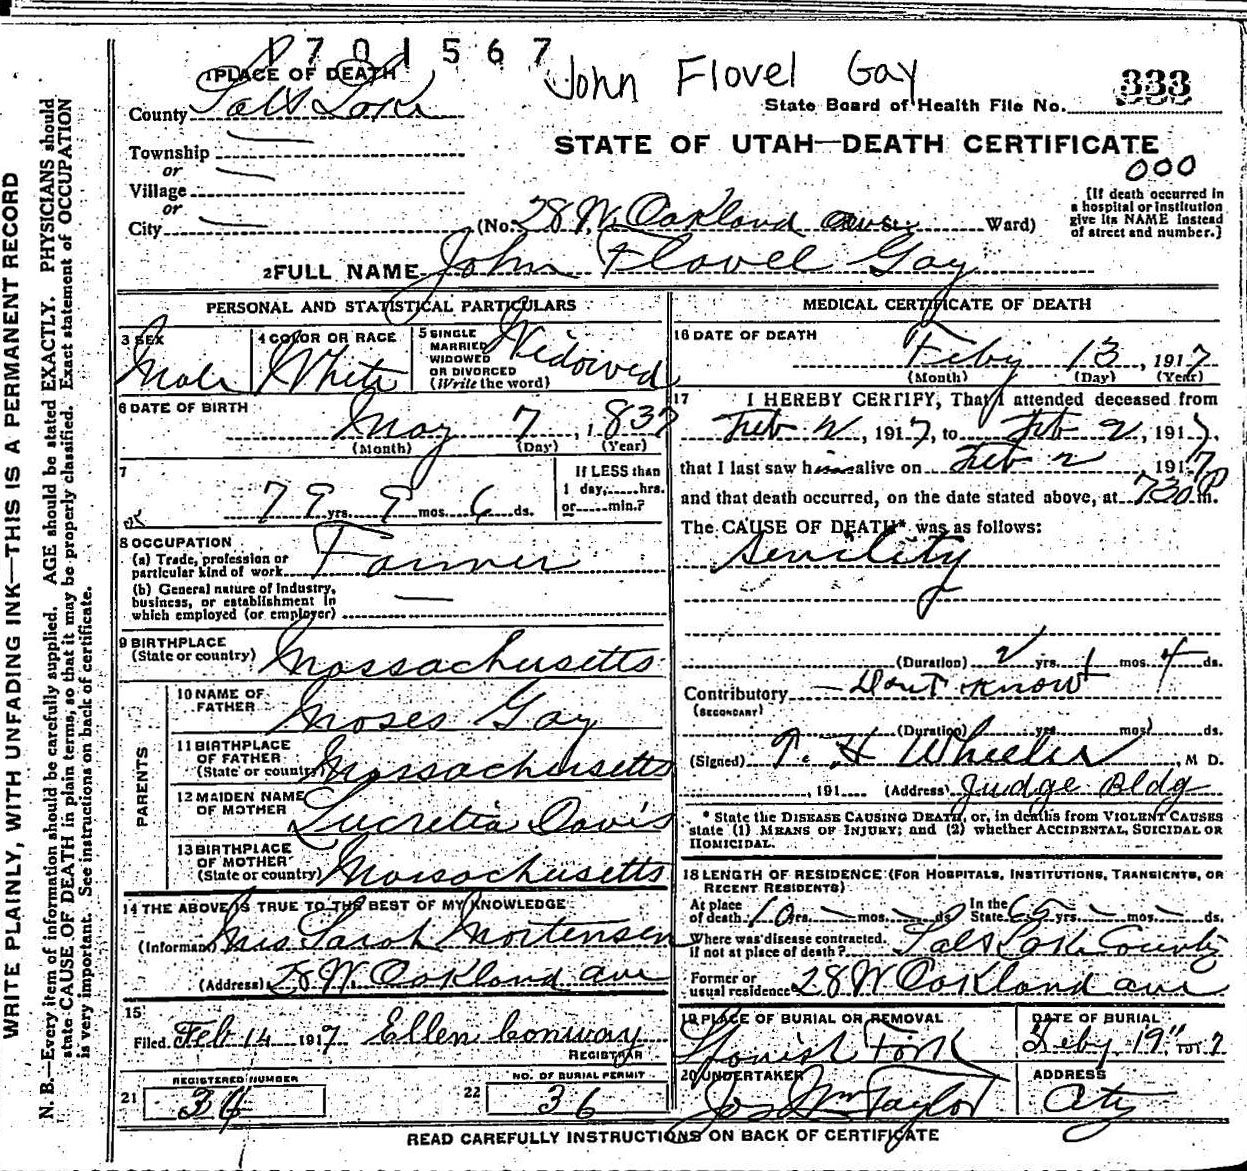 1701567
John Flovel Gay
333
State Board of Health File No.
STATE OF UTAH—DEATH CERTIFICATE
000
1 PLACE OF DEATH
County Salt Lake
Township
or
Village
or
City
(No. 28 W. Oakland ave. Ward)
[If death occurred in
a hospital or institution
give its NAME instead
of street and number.]
2 FULL NAME John Flovel Gay
PERSONAL AND STATISTICAL PARTICULARS
3 SEX
Male
4 COLOR OR RACE
White
5 SINGLE
MARRIED
WIDOWED
OR DIVORCED
(Write the word)
Widowed
6 DATE OF BIRTH
May 7, 1837
(Month) (Day) (Year)
7
79 yrs. 9 mos. 6 ds.
If LESS than
1 day, hrs.
or min.?
OK
8 OCCUPATION
(a) Trade, profession or
particular kind of work Farmer
(b) General nature of Industry,
business, or establishment in
which employed (or employer)
9 BIRTHPLACE
(State or country) Massachusetts
PARENTS
10 NAME OF
FATHER Moses Gay
11 BIRTHPLACE
OF FATHER
(State or country) Massachusetts
12 MAIDEN NAME
OF MOTHER Lucretia Davis
13 BIRTHPLACE
OF MOTHER
(State or country) Massachusetts
14 THE ABOVE IS TRUE TO THE BEST OF MY KNOWLEDGE
(Informant) Mrs Sarah Mortensen
(Address) 28 W. Oakland ave
15
Filed Feb 14 1917 Ellen Conway
REGISTRAR
REGISTERED NUMBER
21 34
NO. OF BURIAL PERMIT
22 36
MEDICAL CERTIFICATE OF DEATH
16 DATE OF DEATH
Feby 13, 1917
(Month) (Day) (Year)
17 I HEREBY CERTIFY, That I attended deceased from
Feb 2, 1917, to Feb 2, 1917,
that I last saw him alive on Feb 2, 1917
and that death occurred, on the date stated above, at 730 P m.
The CAUSE OF DEATH* was as follows:
Senility
(Duration) 2 yrs. 1 mos. 4 ds.
Contributory Dont know
(SECONDARY)
(Duration) yrs. mos. ds.
(Signed) T. H Wheeler, M D.
, 191 (Address) Judge Bldg
* State the DISEASE CAUSING DEATH, or, in deaths from VIOLENT CAUSES
state (1) MEANS OF INJURY; and (2) whether ACCIDENTAL, SUICIDAL OR
HOMICIDAL.
18 LENGTH OF RESIDENCE (FOR HOSPITALS, INSTITUTIONS, TRANSIENTS, OR
RECENT RESIDENTS)
At place
of death 10 yrs. mos. ds. In the
State 65 yrs. mos. ds.
Where was disease contracted,
if not at place of death? Salt Lake County
Former or
usual residence 28 W Oakland ave
19 PLACE OF BURIAL OR REMOVAL
Spanish Fork
DATE OF BURIAL
Feby 19" 1917
20 UNDERTAKER
Jos Wm Taylor
ADDRESS
City
READ CAREFULLY INSTRUCTIONS ON BACK OF CERTIFICATE
WRITE PLAINLY, WITH UNFADING INK—THIS IS A PERMANENT RECORD
N. B.—Every item of information should be carefully supplied. AGE should be stated EXACTLY. PHYSICIANS should
state CAUSE OF DEATH in plain terms, so that it may be properly classified. Exact statement of OCCUPATION
is very important. See instructions on back of certificate.